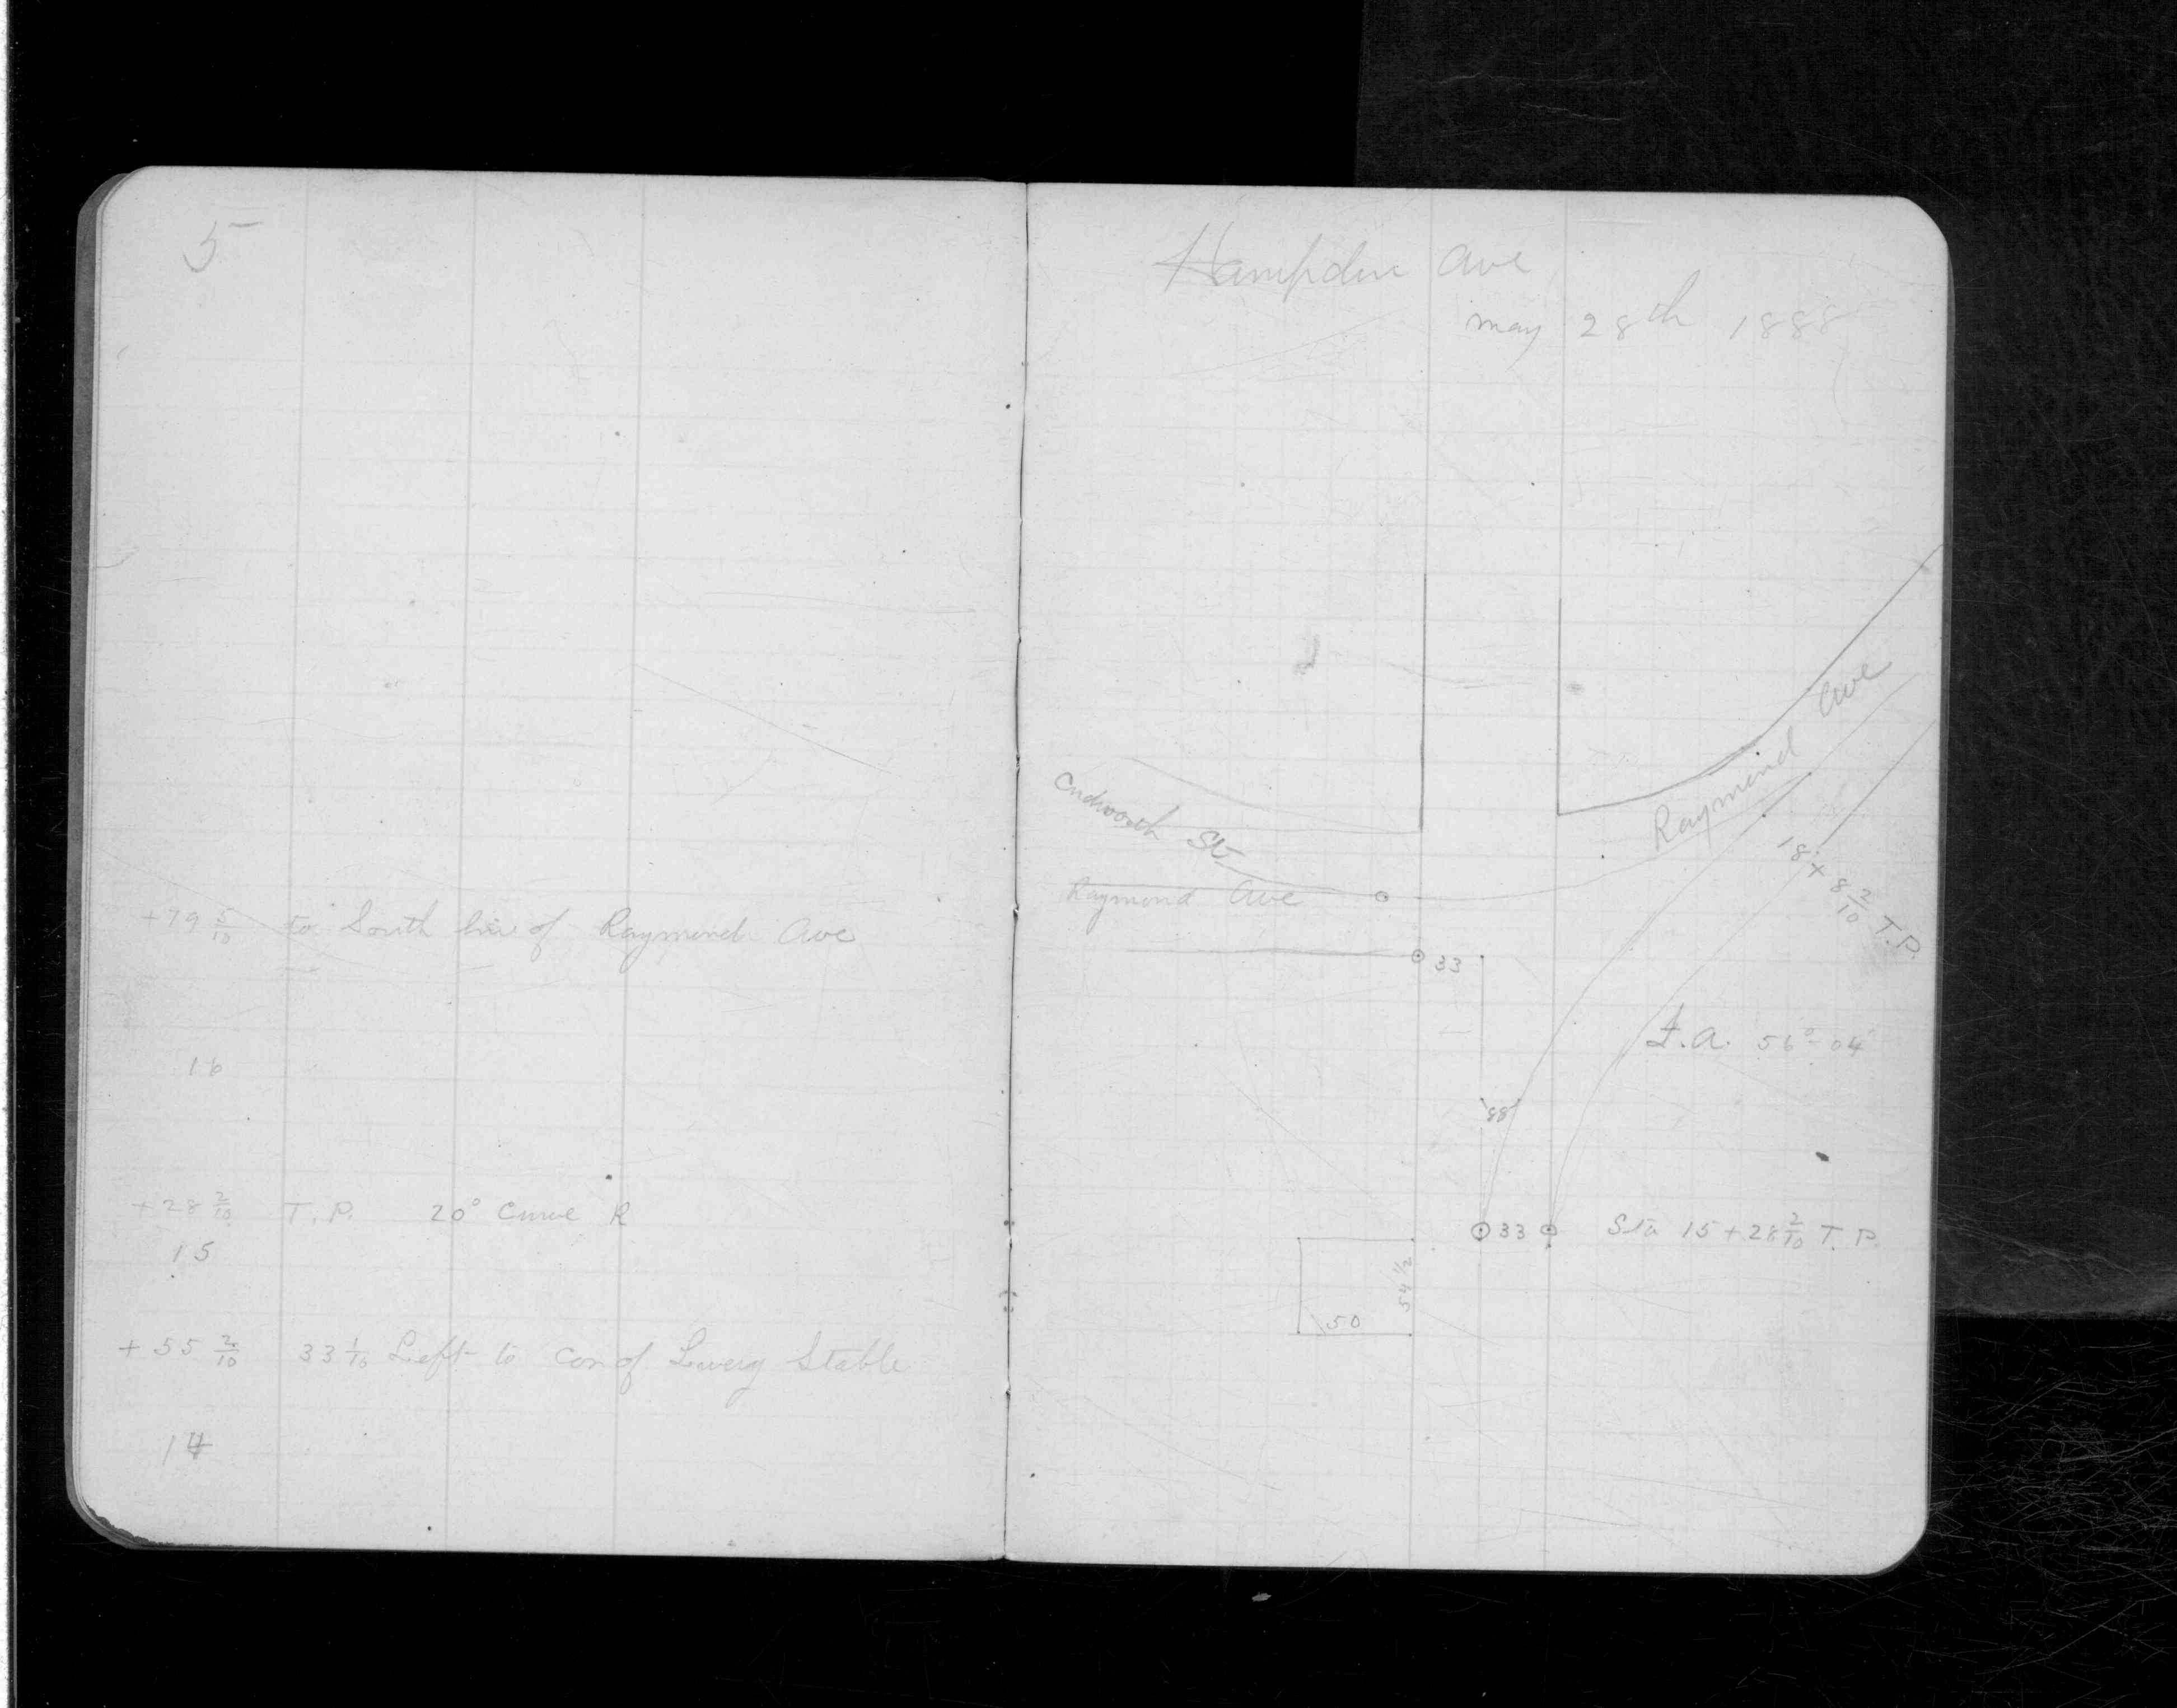 5
+79 5/10 to South line of Raymond Ave
16
+28 2/10 T.P. 20° Curve R
15
+55 2/10 33 1/10 Left to cor of Livery Stable
14
Hampden Ave
May 28th 1888
Raymond Ave
St
Raymond Ave
18+8 2/10 T.P.
33
I.A. 56°-04'
88
33 Sta 15+28 2/10 T.P.
54 1/2
50